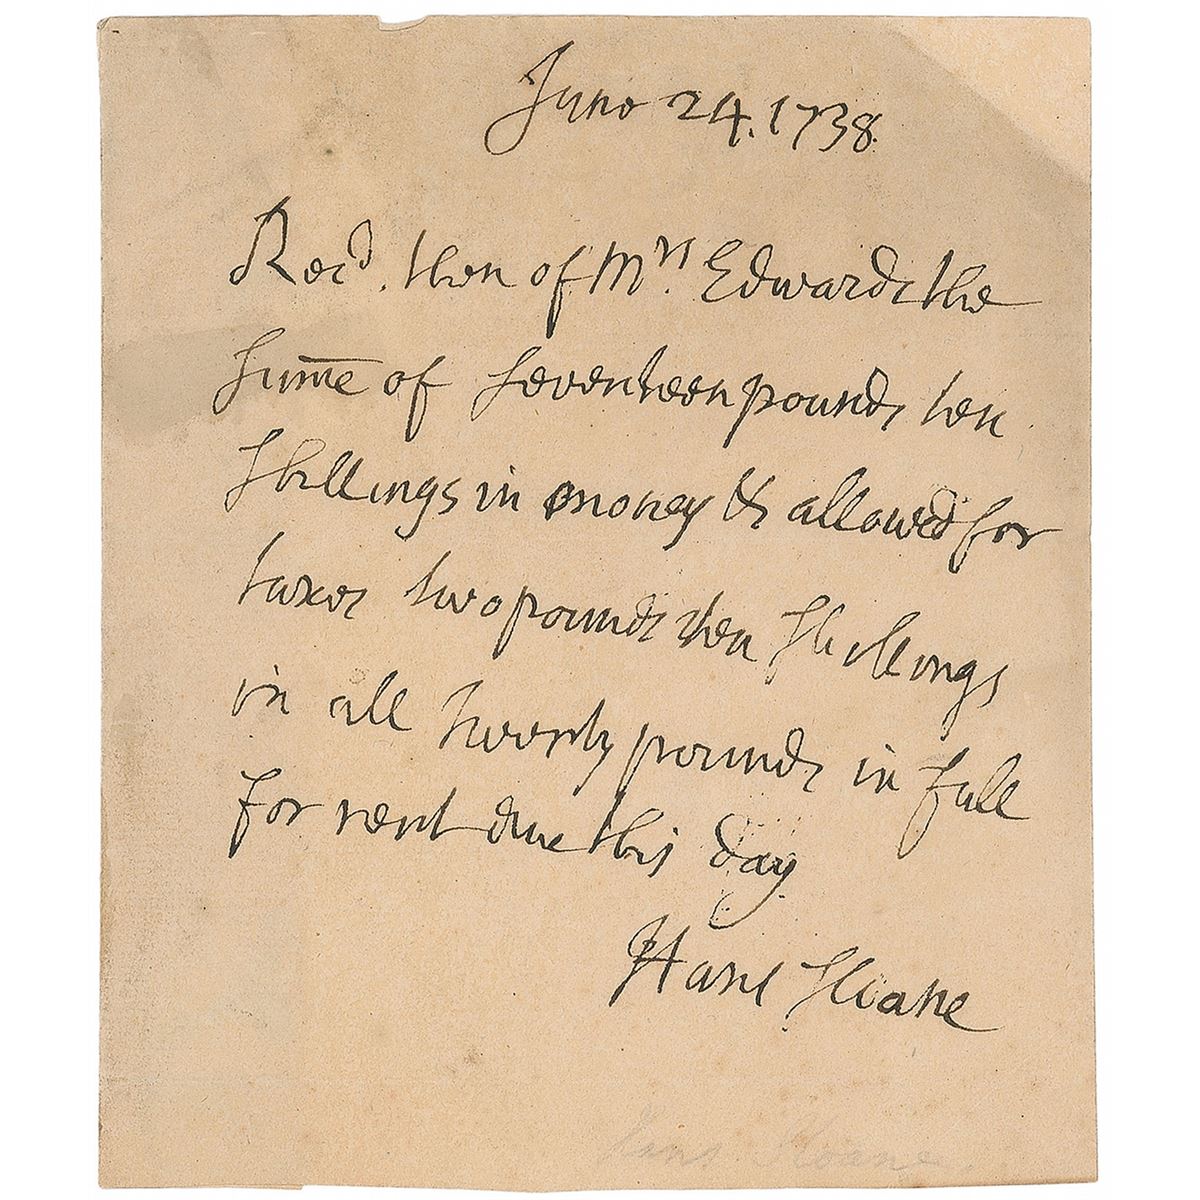 June 24. 1738.
Recd. then of Mrs. Edwards the
sum̅e of seventeen pounds ten
shillings in money & allowed for
taxes two pounds ten shillings
in all twenty pounds in full
for rent due this day
Hans Sloane
Hans Sloane.